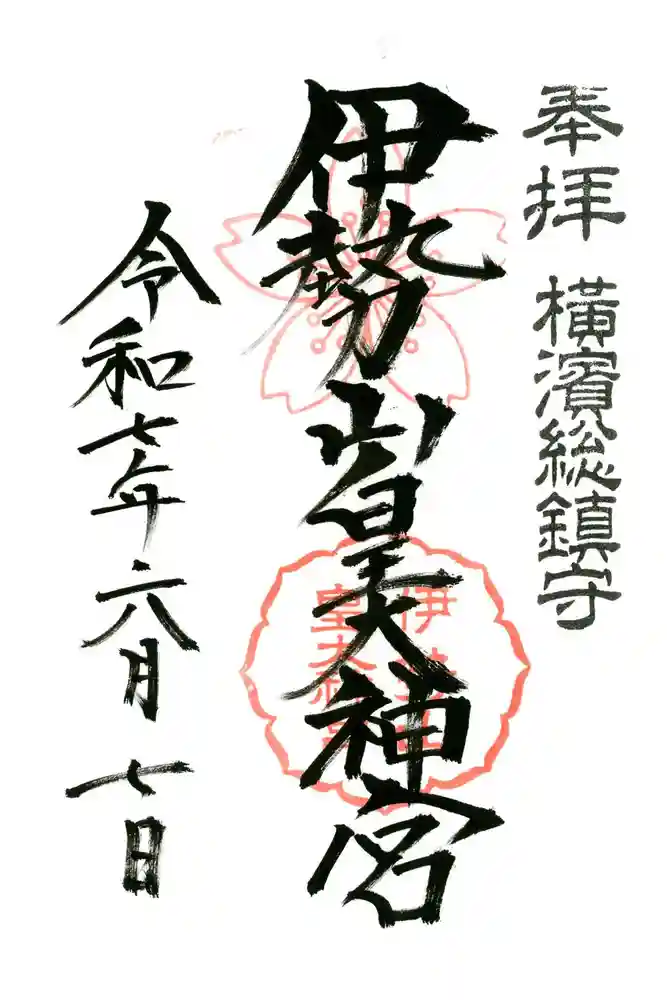 奉拝 橫濱総鎮守
伊勢山皇大神宮
令和七年六月七日
伊勢山
皇大神宮